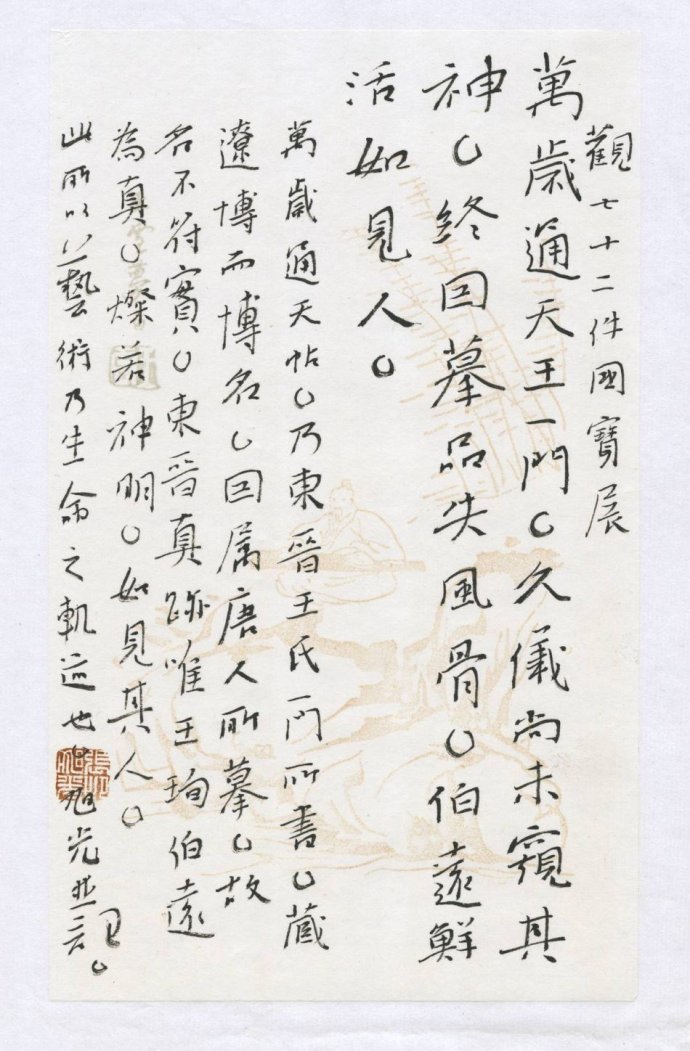 觀七十二件國寶展
萬歲通天王一門〇久儀尚未窺其
神〇終因摹品失風骨〇伯遠鮮
活如見人〇
萬歲通天帖〇乃東晉王氏一門所書〇藏
遼博而博名〇因属唐人所摹〇故
名不符實〇東晉真跡唯王珣伯遠
為真〇燦若神明〇如見其人〇
此所以藝術乃生命之軌迹也旭光並